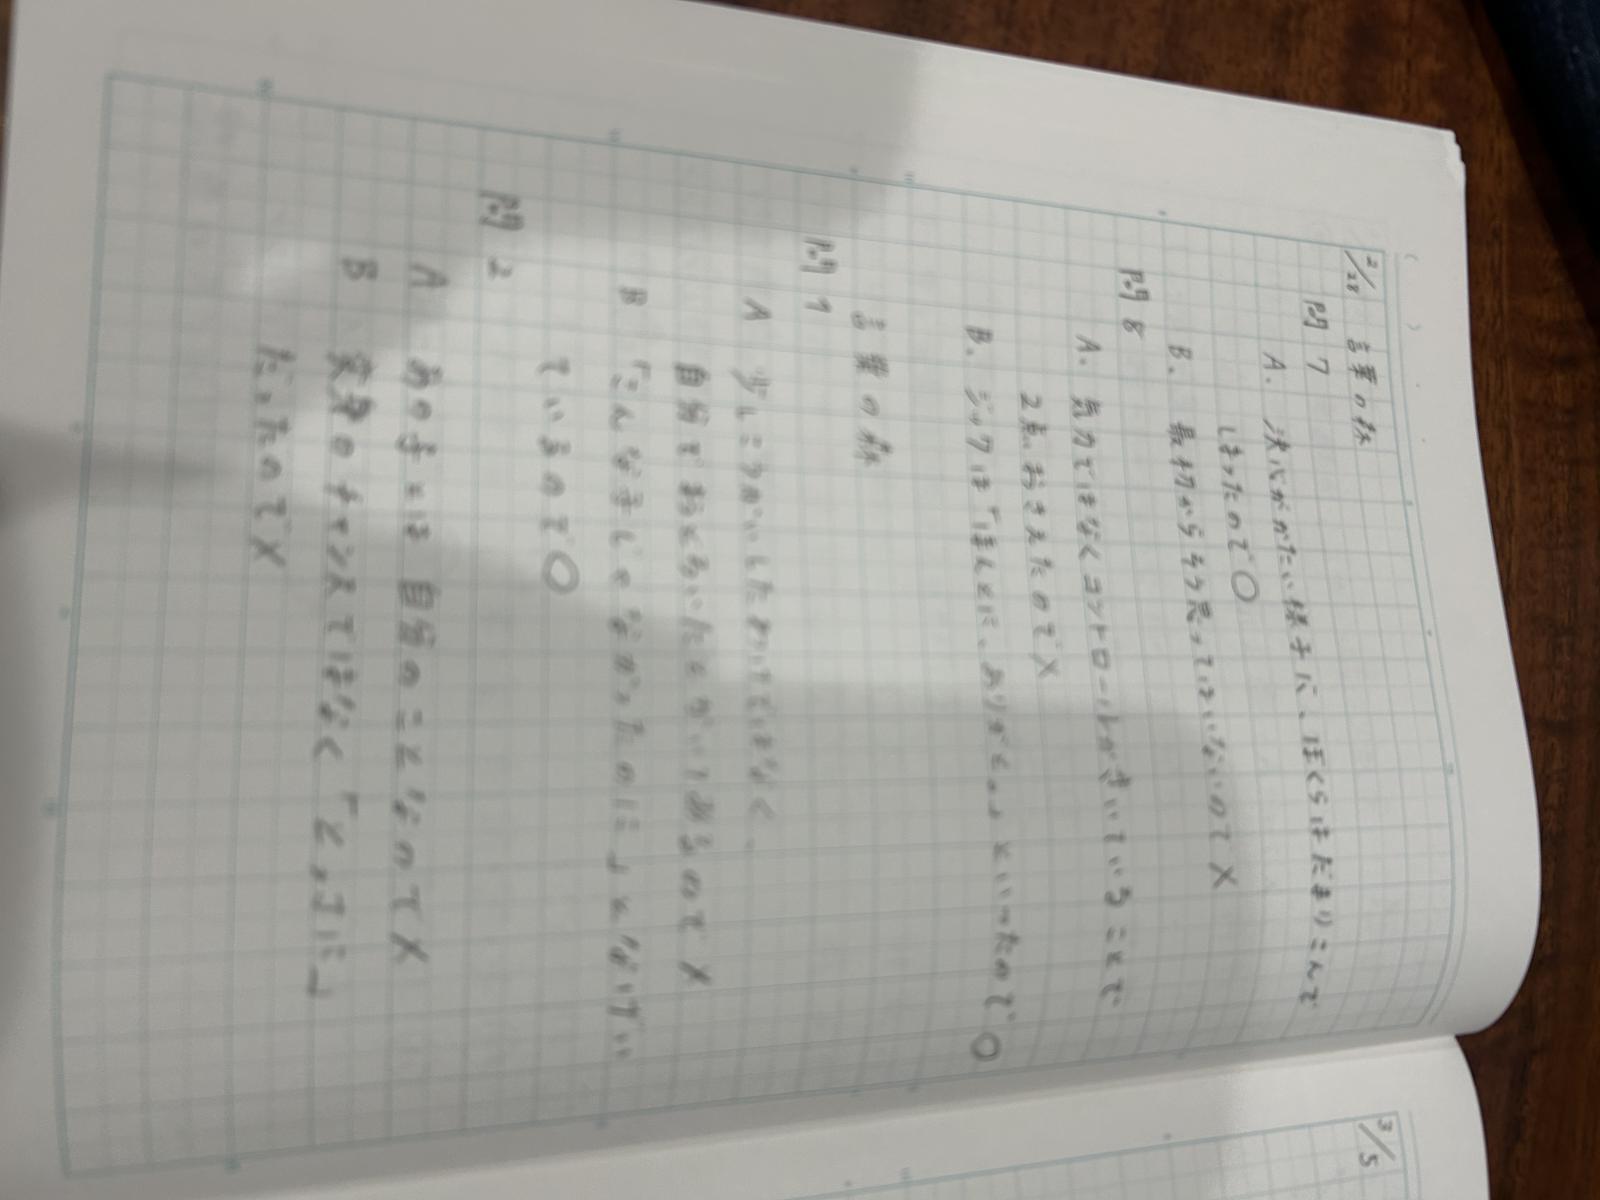 2/28 言葉の森
問7
A. 決心がかたい様子に、ぼくらはだまりこんで
しまったので○
B. 最初からそう思ってはいないので×
問8
A. 気力ではなくコントロールがきいていることで
2点おさえたので×
B. ジックは「ほんとに、ありがとう」といったので○
言葉の森
問1
A 少しこうかいしたわけではなく、
自分でおどろいたとかいてあるので×
B 「こんな子じゃなかったのに」となげい
ているので○
問2
A あの子とは自分のことなので×
B 最 のチャンスではなく「とっさに」
だったので×
3/5